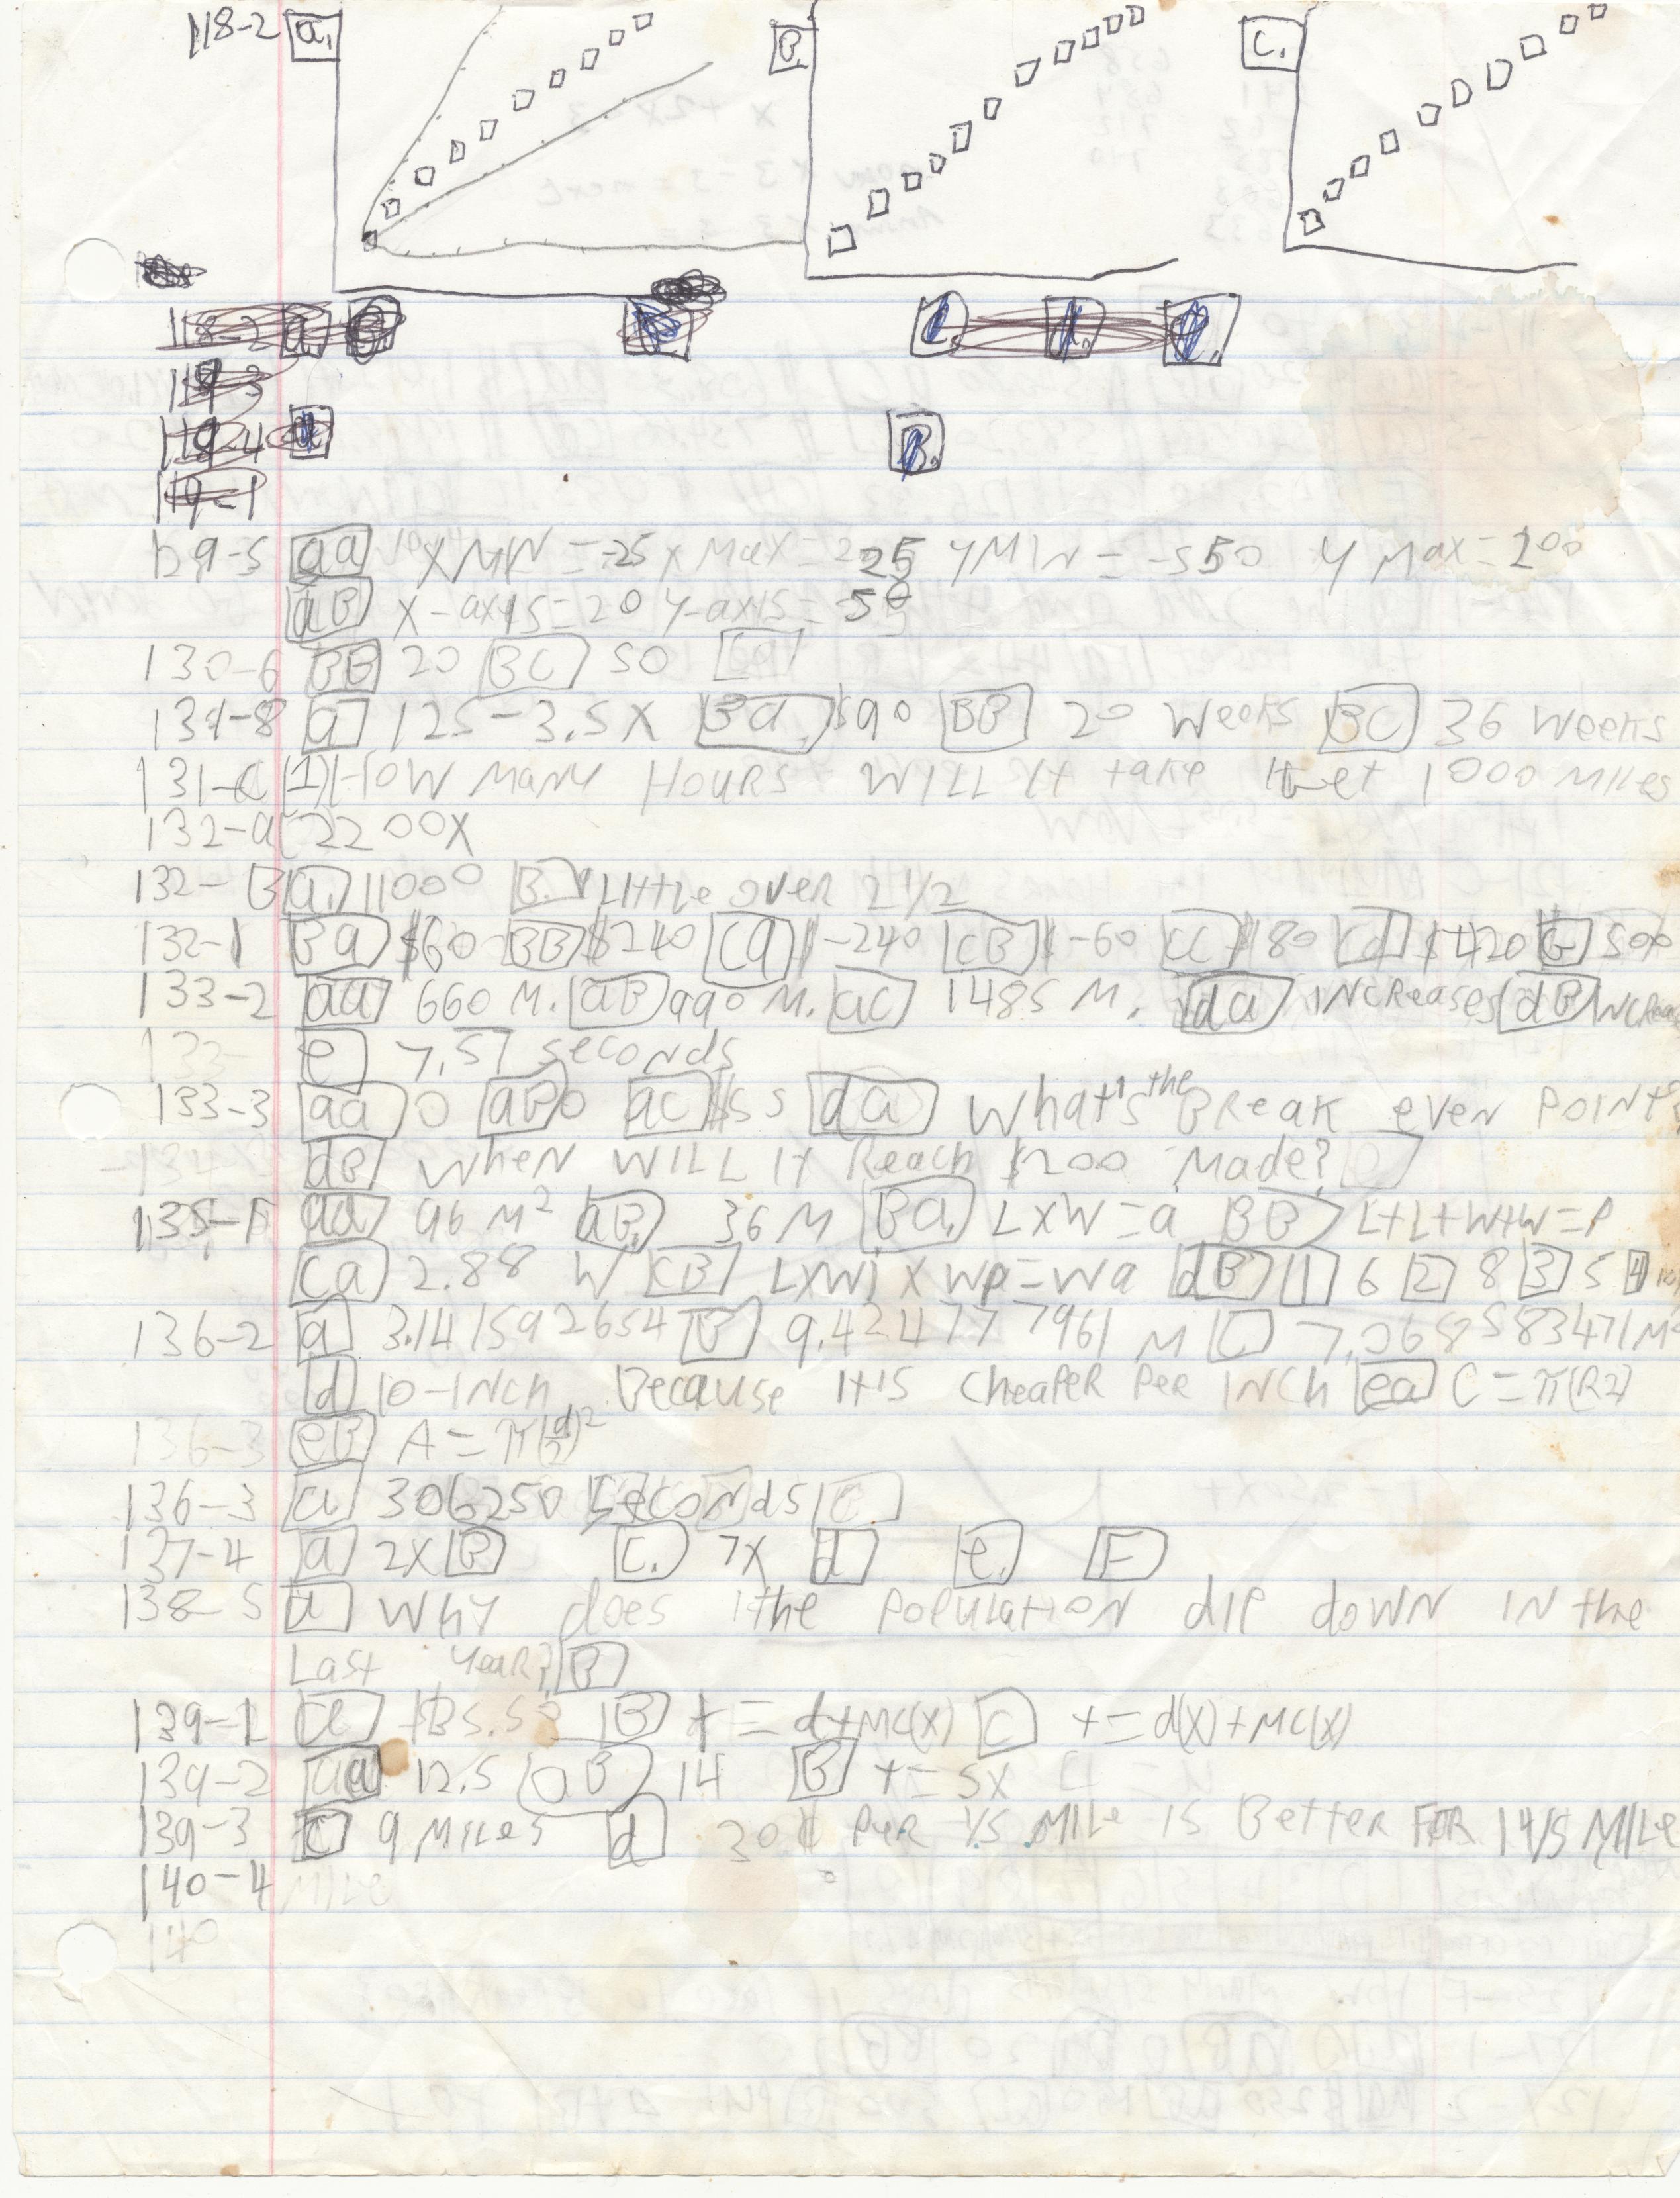 118-2 a. B. C.
118-2 a.
119-3
119-4 a B.
119-1
129-5 aa XMIN = -25 X Max = 25 YMIN = -550 Y Max = 200
aB X-axis = 20 Y-axis = 50
130-6 BB 20 BC 50 Ca
131-8 a 125-3.5X Ba $90 BB 20 weeks BC 36 weeks
131-C (1) How Many Hours will it take to get 1000 Miles
132-a 2200X
132-B a. 11000 B. Little over 2 1/2
132-1 Ba $60 BB $240 Ca $-240 CB $-60 CC $180 Cd $420 500
133-2 aa 660 M. aB 990 M. aC 1485 M. da INCReases dB
133- e 7.57 seconds
133-3 aa 0 aB 0 aC $55 da What's the Break even Points
134- dB When WILL It Reach $200 Made? e
135-1 aa 96 M² aB. 36 M Ba. LXW=a BB L+L+W+W=P
Ca 2.88 W CB LXWiXWp=Wa dB 1 6 2 8 3 5 4
136-2 a 3.141592654 B 9.424777961 M C 7.068583471 M²
d 10-INCh Because It is cheaper Per INCh ea C=π(R2)
136-3 eB A=π(d/2)²
136-3 a 306250 seconds C
137-4 a 2X B C. 7X d e. F
138-5 a Why does the Population dip down in the
Last Year? B
139-1 a $35.50 B t=d+MC(X) C t=d(X)+MC(X)
139-2 aa 12.5 aB 14 B t=5X
139-3 C 9 Miles d 30¢ Per 1/5 MILE is Better FOR 1 4/5 MILE
140-4 MILe
140